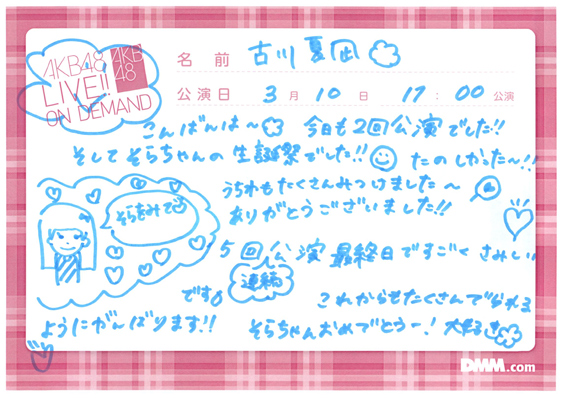 AKB48
LIVE!!
ON DEMAND
AKB
48
名前 古川夏凪
公演日 3月10日 17:00公演
こんばんは〜 今日も2回公演でした!!
そしてそらちゃんの生誕祭でした!! たのしかった〜!!
うちわもたくさんみつけました〜
ありがとうございました!!
そらをみて
5回公演最終日ですごくさみしい
連続
です
これからもたくさんでられる
ようにがんばります!!
そらちゃんおめでとうー! 大好き
DMM.com